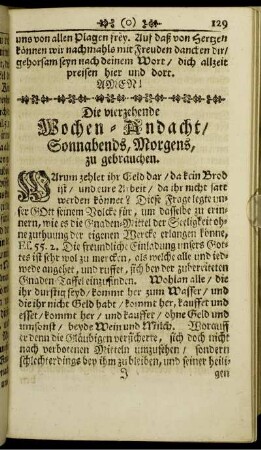 (o) 129
uns von allen Plagen frey. Auf daß von Hertzen
können wir nachmahls mit Freuden dancken dir/
gehorsam seyn nach deinem Wort/ dich allzeit
preisen hier und dort.
AMEN!
Die vierzehende
Wochen-Andacht/
Sonnabends, Morgens,
zu gebrauchen.
WArum zehlet ihr Geld dar/ da kein Brod
ist/ und eure Arbeit/ da ihr nicht satt
werden könnet? Diese Frage legte un-
ser GOtt seinem Volcke für, um dasselbe zu erin-
nern, wie es die Gnaden-Mittel der Seeligkeit oh-
ne zuthuung der eigenen Wercke erlangen könne,
Es. 55. 2. Die freundliche Einladung unsers Got-
tes ist sehr wol zu mercken, als welche alle und ie-
wede angehet, und ruffet, sich bey der zubereiteten
Gnaden-Taffel einzufinden. Wohlan alle/ die
ihr durstig seyd/ kommet her zum Wasser/ und
die ihr nicht Geld habt/ kommet her, kauffet und
esset/ kommet her/ und kauffet/ ohne Geld und
umsonst/ beyde Wein und Milch. Worauff
er denn die Gläubigen versicherte, sich doch nicht
nach verbotenen Mitteln umzusehen/ sondern
schlechterdings bey ihm zu bleiben, und seiner heili-
J gen